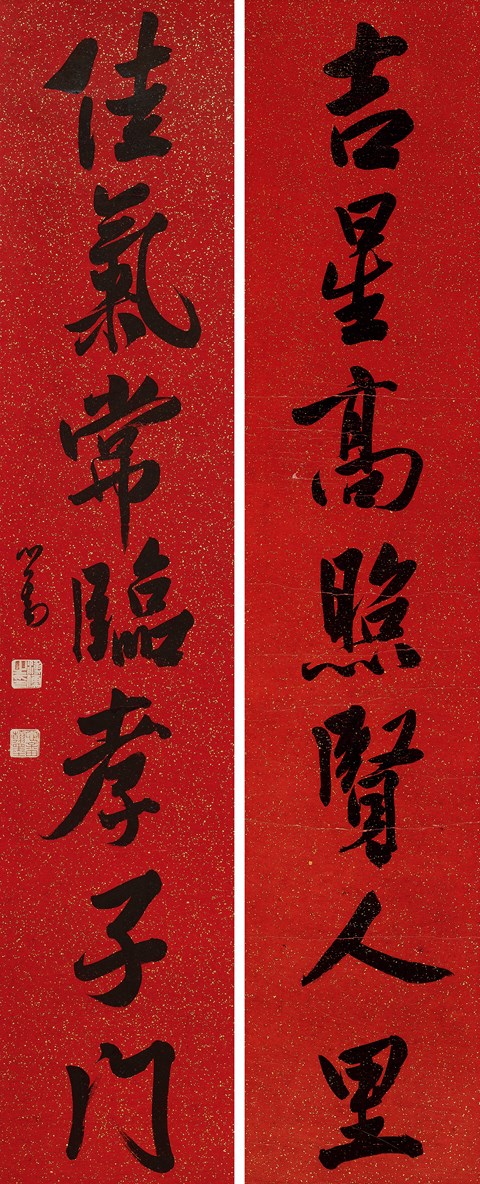 吉星高照賢人里
佳氣常臨孝子門
心畬